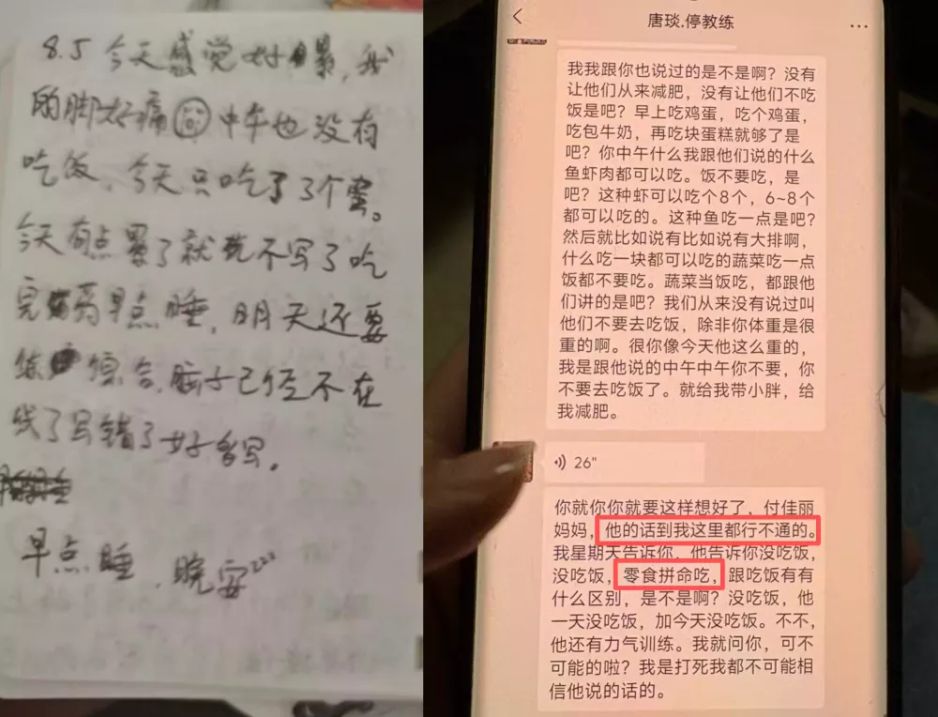 8.5 今天感觉好累，我
的脚好痛 中午也没有
吃饭，今天只吃了3个蛋。
今天有点累了就先不写了吃
完药早点睡，明天还要
练 综合，脑子已经不在
线了写错了好多写。
早点睡，晚安zzz
唐琰.停教练
我我跟你也说过的是不是啊？没有
让他们从来减肥，没有让他们不吃
饭是吧？早上吃鸡蛋，吃个鸡蛋，
吃包牛奶，再吃块蛋糕就够了是
吧？你中午什么我跟他们说的什么
鱼虾肉都可以吃。饭不要吃，是
吧？这种虾可以吃个8个，6~8个
都可以吃的。这种鱼吃一点是吧？
然后就比如说有比如说有大排啊，
什么吃一块都可以吃的蔬菜吃一点
饭都不要吃。蔬菜当饭吃，都跟他
们讲的是吧？我们从来没有说过叫
他们不要去吃饭，除非你体重是很
重的啊。很你像今天他这么重的，
我是跟他说的中午中午你不要，你
不要去吃饭了。就给我带小胖，给
我减肥。
26"
你就你你就要这样想好了，付佳丽
妈妈，他的话到我这里都行不通的。
我星期天告诉你，他告诉你没吃饭，
没吃饭，零食拼命吃，跟吃饭有有
什么区别，是不是啊？没吃饭，他
一天没吃饭，加今天没吃饭。不不，
他还有力气训练。我就问你，可不
可能的啦？我是打死我都不可能相
信他说的话的。